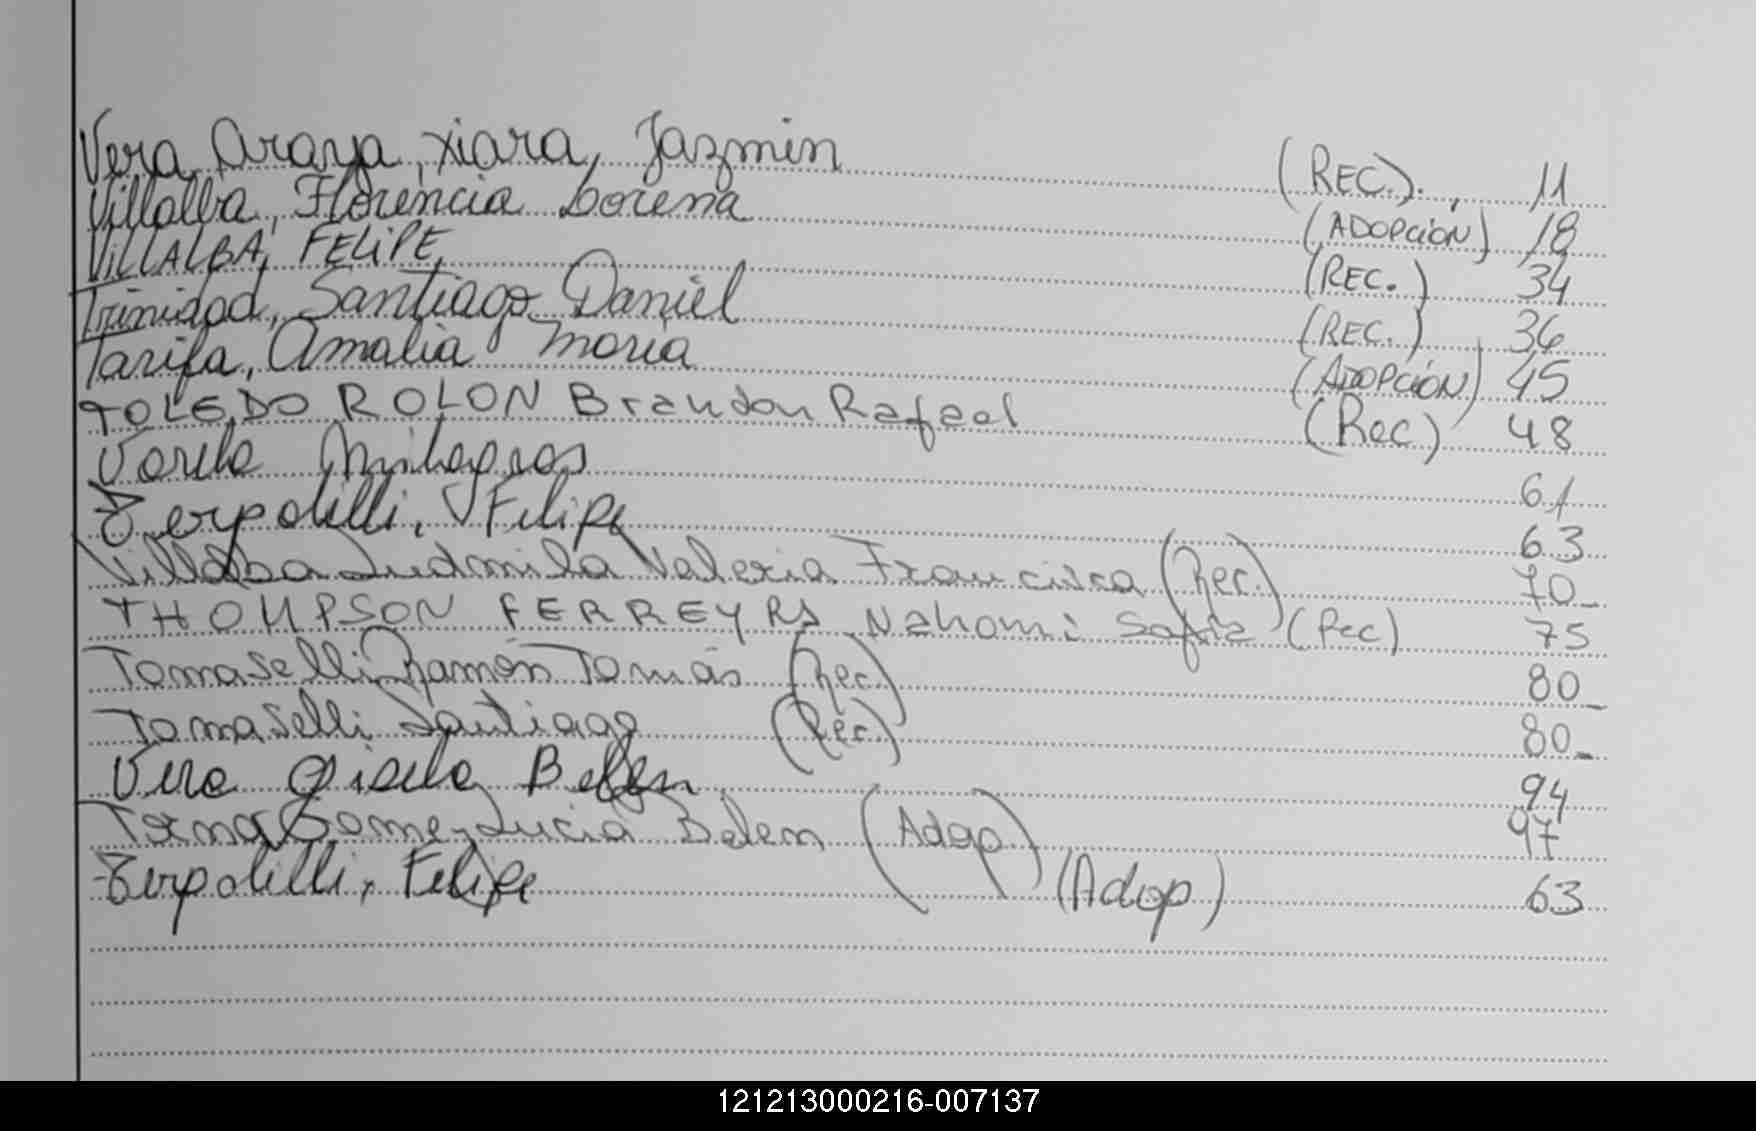 Vera Araya, Xiara, Jazmin (REC.). 11
Villalba, Florencia Lorena (ADOPCIÓN) 18
VILLALBA, FELIPE, (REC.) 34
Trinidad, Santiago Daniel (REC.) 36
Tarifa, Amalia Moria (ADOPCIÓN) 45
TOLEDO ROLON Brandon Rafael (Rec) 48
Varela Milagros 61
Terpolilli, Felipe 63
Villalba Ludmila Valeria Francisca (Rec.) 70
THOMPSON FERREYRA Nahomi Sofia (Rec) 75
Tomaselli Ramón Tomás (Rec.) 80
Tomaselli Santiago (Rec.) 80
Vera Gisela Belen 94
Gomez Lucia Belem (Adop) 97
Terpolilli, Felipe (Adop) 63
121213000216-007137